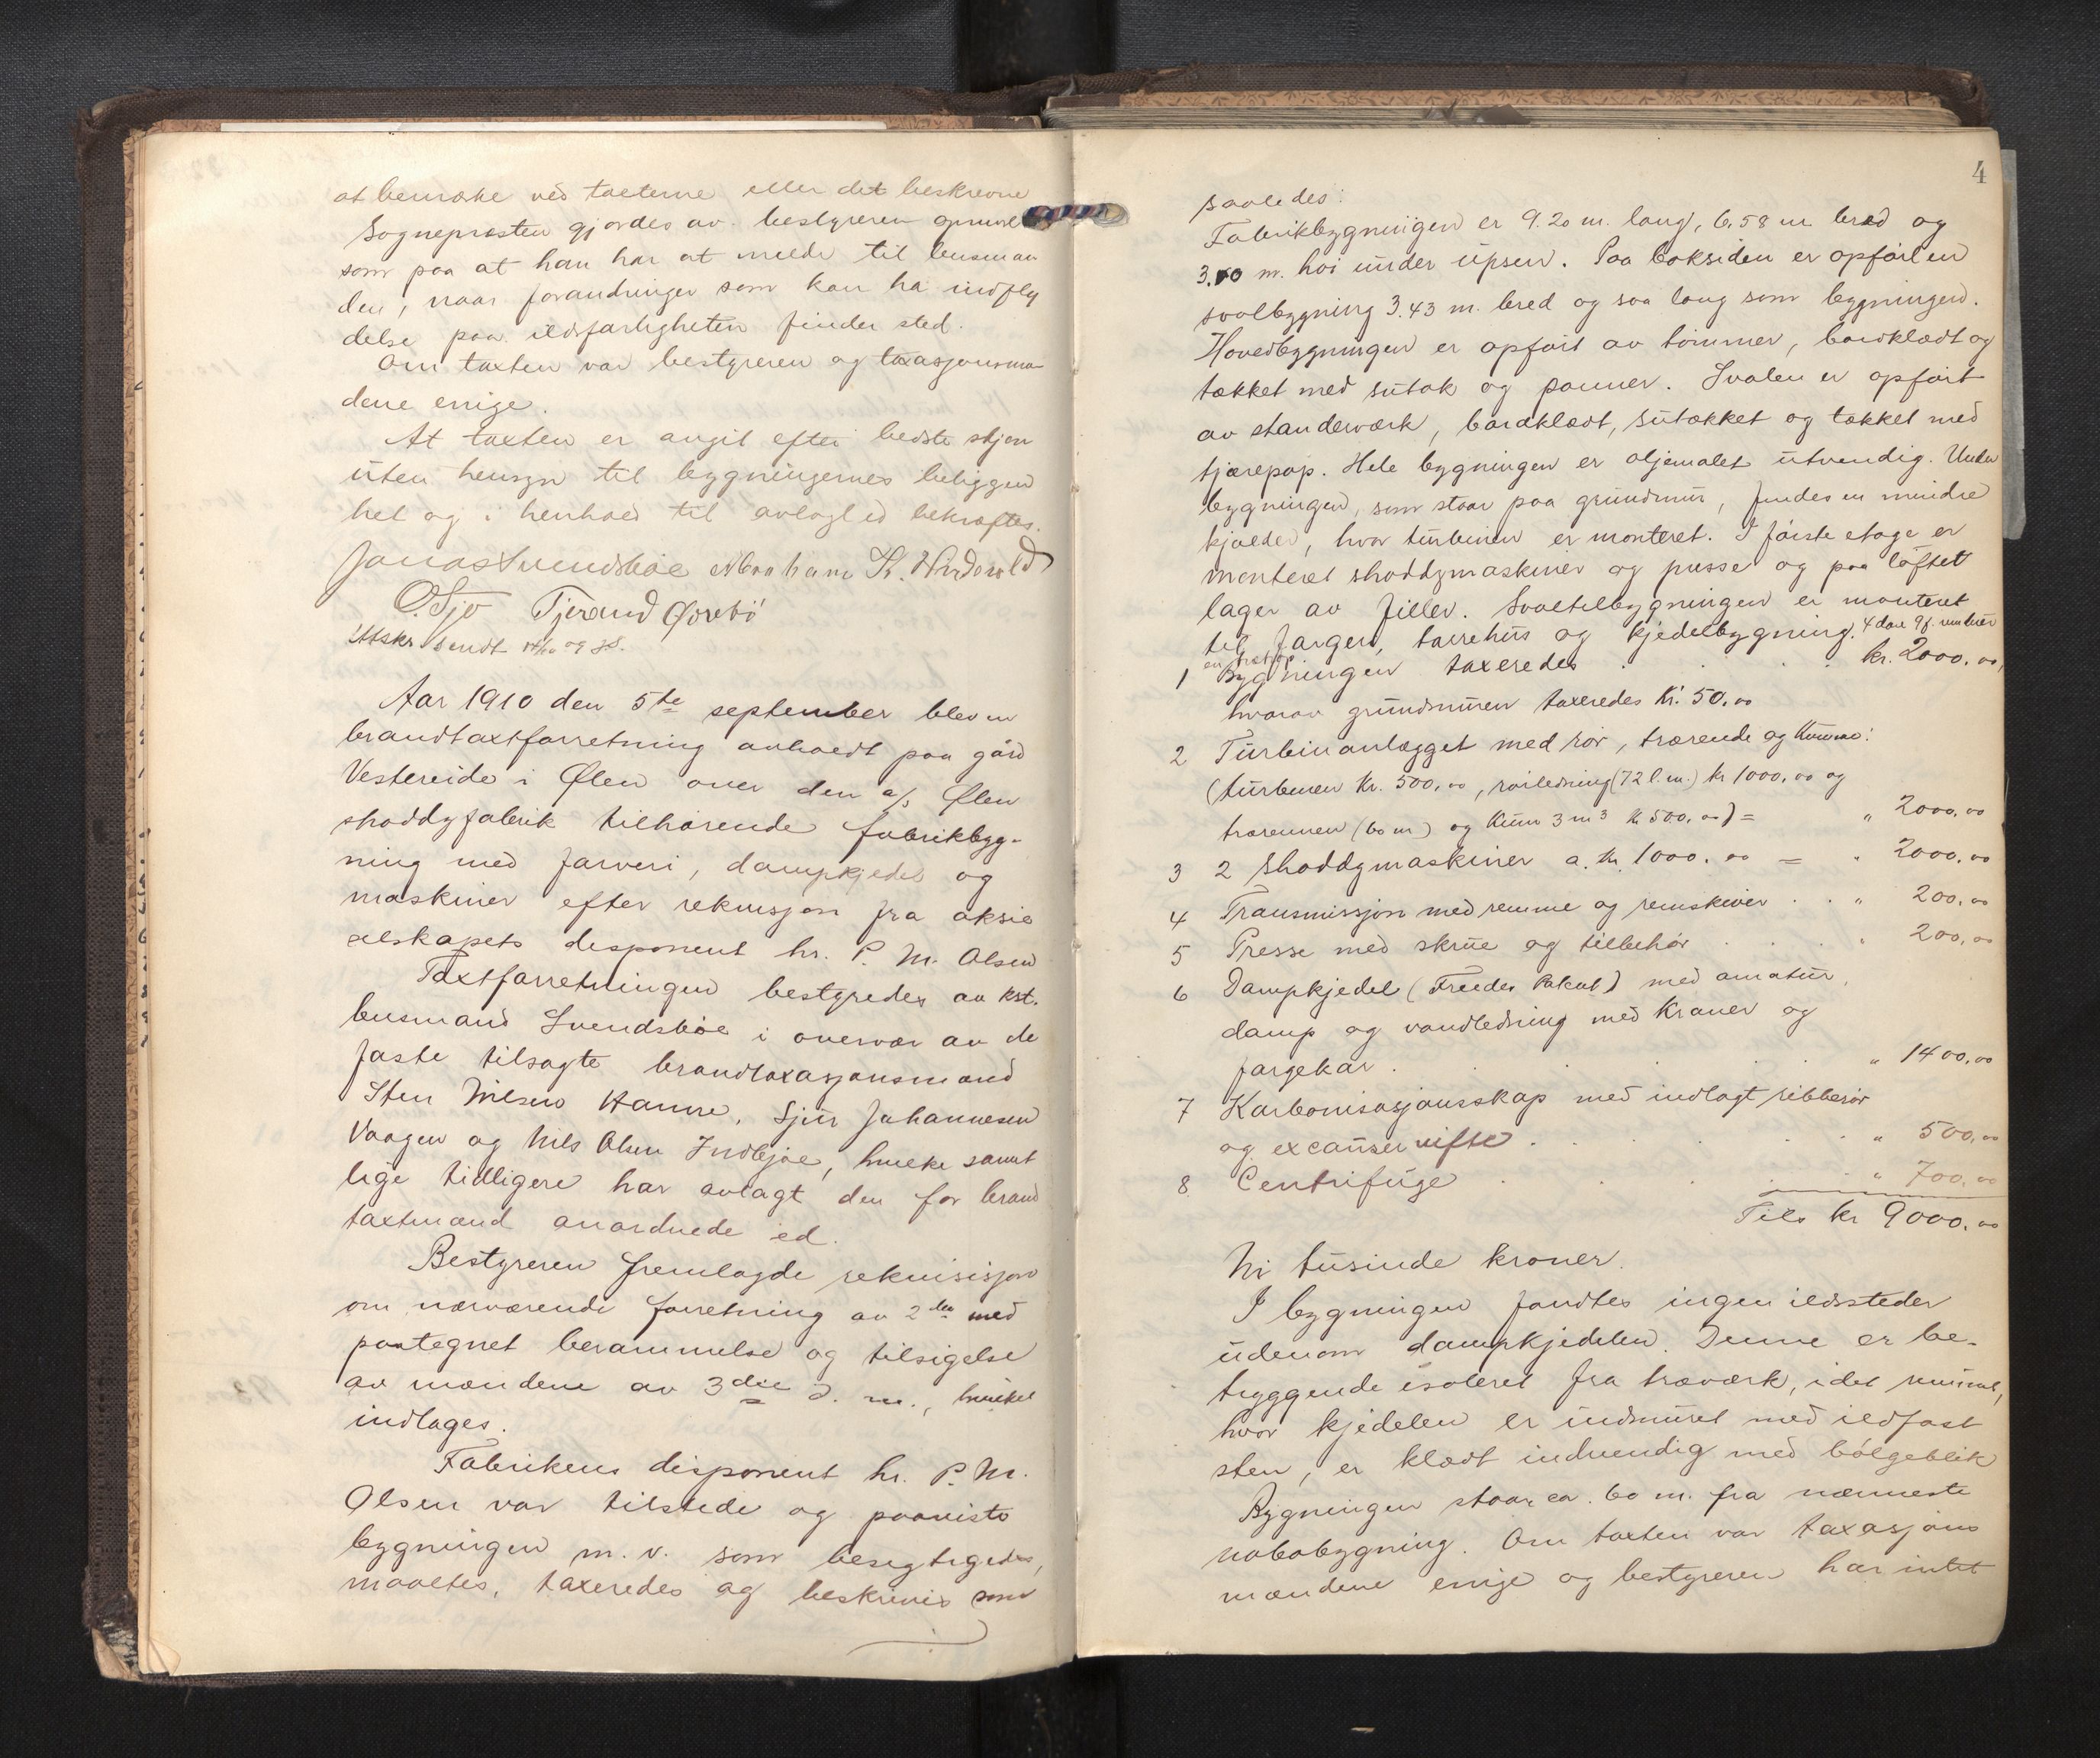 at bemærke ved taxterne eller det beskrevne
Sognepræsten gjordes av bestyreren opmerk
som paa at han har at melde til lensman
den, naar forandringer som kan ha indfly
delse paa ildsfarligheten finder sted.
Om taxten var bestyreren og taxasjonsmæn
dene enige.
At taxten er angit efter bedste skjøn
uten hensyn til bygningernes beliggen
het og i henhold til avlagt ed bekræftes.
Jonas Svendsbøe Abraham K.
O. Sjo Tjerand Ørrebø
Utskr. sendt
Aar 1910 den 5te september blev en
brandtaxtforretning avholdt paa gård
Vestereide i Ølen over den a/s Ølen
shoddyfabrik tilhørende fabrikbyg-
ning med farveri, dampkjedel og
maskiner efter rekvisjon fra aksie
selskapets disponent hr. P. M. Olsen
Taxtforretningen bestyredes av kst.
lensmand Svendsbøe i overvær av de
faste tilsagte brandtaxasjonsmænd
Sten Nilsen Hamre, Sjur Johannesen
Vaagen og Nils Olsen Indbjoe, hvilke samt
lige tidligere har avlagt den for brand
taxtmænd anordnede ed.
Bestyreren fremlagde rekvisisjon
om nærværende forretning av 2den med
paategnet berammelse og tilsigelse
av mændene av 3die d. m., hvilket
indtages.
Fabrikens disponent hr. P. M.
Olsen var tilstede og paaviste
bygningen m. v. som besigtigedes,
maaltes, taxeredes og beskrives som
4
saaledes:
Fabrikbygningen er 9.20 m. lang, 6,58 m bred og
m. høi under upsen. Paa baksiden er opført en
svalbygning 3.43 m. bred og saa lang som bygningen.
Hovedbygningen er opført av tømmer, bordklædt og
tækket med sutak og panner. Svalen er opført
av standerværk, bordklædt, sutækket og tækket med
tjærepap. Hele bygningen er oljemalet utvendig. Under
bygningen, som staar paa grundmur, findes en mindre
kjelder, hvor turbinen er monteret. I første etage er
monteret shoddymaskiner og presse og paa loftet
lager av filler. Svaltilbygningen er monteret
til fargeri, tørrehus og kjedelbygning. 4 døre 9 f. vinduer
1 Bygningen taxeredes . . . . kr. 2000.00,
hvorav grundmuren taxeredes kr. 50.00
2 Turbinanlægget med rør, trærende og kumme:
(turbinen kr. 500,00, rørledning (72 l.m.) kr 1000,00 og
trærennen (60 m) og kum 3 m3 kr 500,00) = " 2000,00
3 2 Shoddymaskiner a. kr. 1000.00 = " 2000,00
4 Transmissjon med remme og remskiver . . " 200,00
5 Presse med skrue og tilbehør . . . . " 200,00
6 Dampkjedel () med amatur,
damp og vandledning med kraner og
fargekar . . . . . " 1400,00
7 Karbonisasjonsskap med indlagt ribberør
og vifte . . . . . " 500,00
8 Centrifuge . . . . . " 700,00
Tils kr 9000,00
Ni tusinde kroner.
I bygningen fandtes ingen ildssteder
udenom dampkjedelen. Denne er be-
tryggende isoleret fra træværk, idet rummet,
hvor kjedelen er indmuret med ildfast
sten, er klædt indvendig med bølgeblik
Bygningen staar ca. 60 m. fra nærmeste
nabobygning. Om taxten var taxasjons
mændene enige og bestyreren har intet